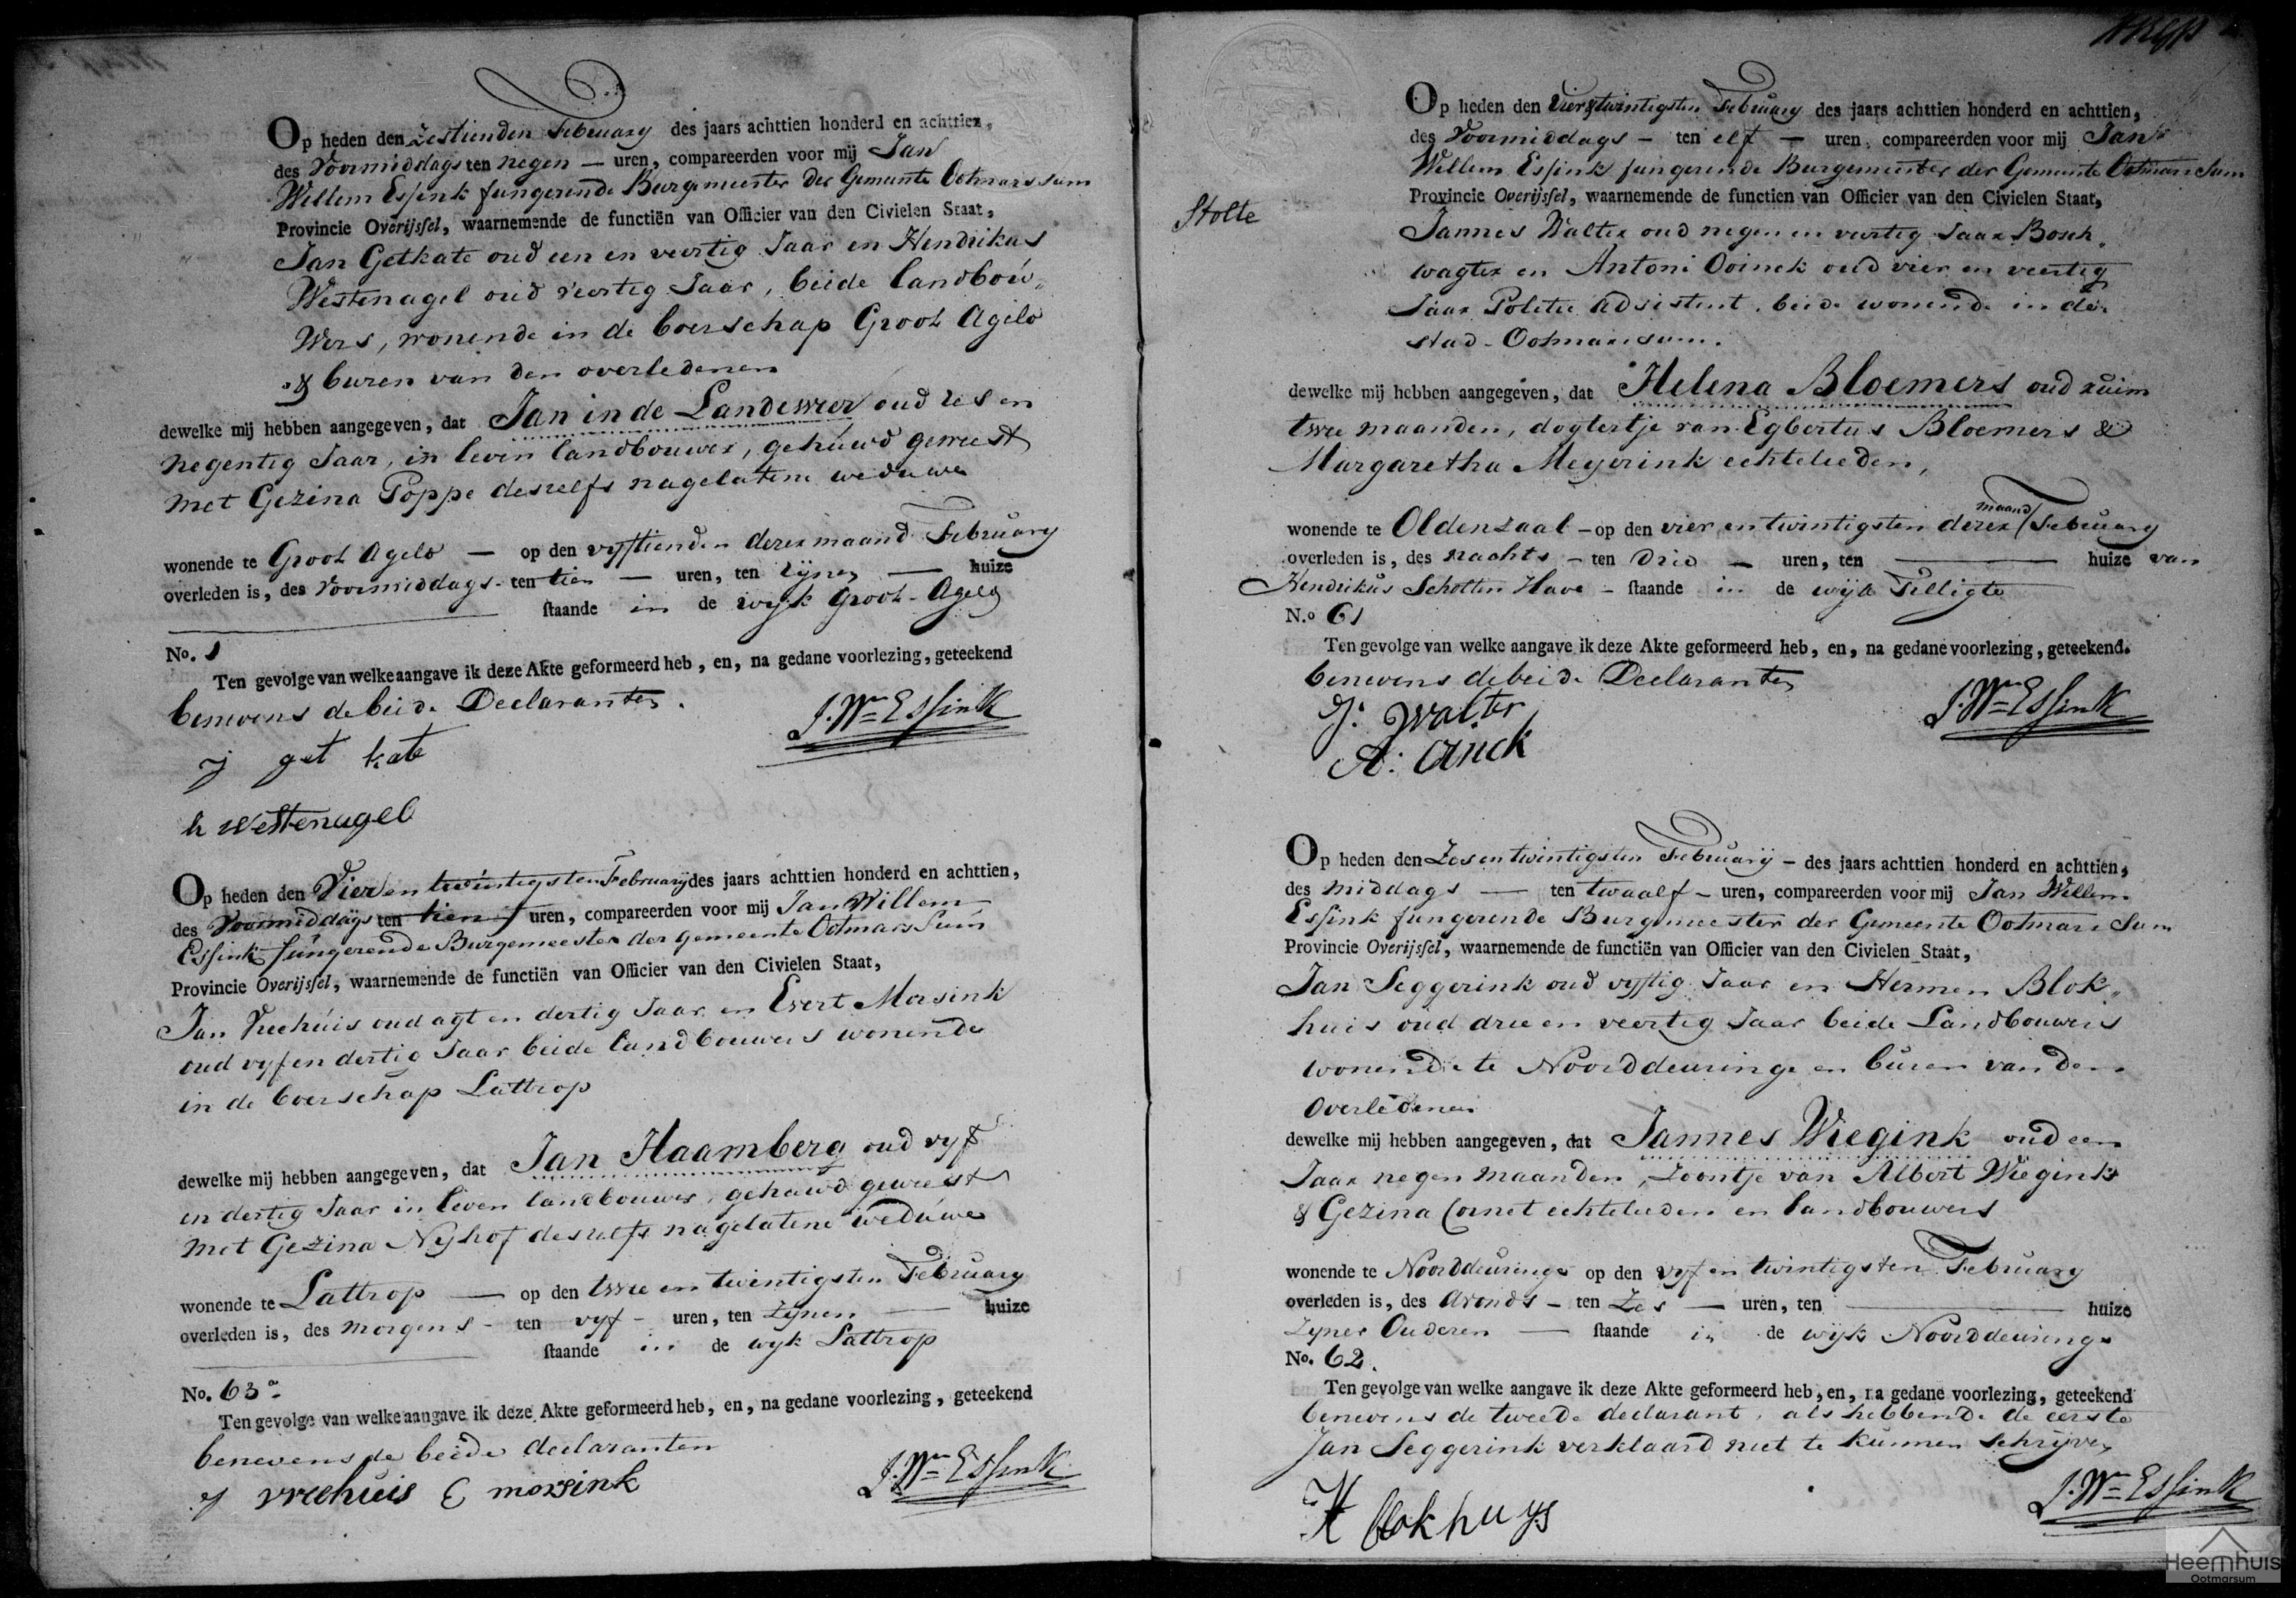 Op heden den Zestienden February des jaars achttien honderd en achttien,
des Voormiddags ten negen — uren, compareerden voor mij Jan
Willem Essink fungerende Burgemeester der Gemeente Ootmarssum
Provincie Overijssel, waarnemende de functiën van Officier van den Civielen Staat,
Jan Getkate oud een en veertig Jaar en Hendrikus
Westenagel oud veertig Jaar, beide landbou„
Wers, wonende in de boerschap Groot Agelo
& buren van den overledenen
dewelke mij hebben aangegeven, dat Jan in de Landewer oud zes en
negentig Jaar, in leven landbouwer, gehuwd geweest
met Gezina Poppe deszelfs nagelatene weduwe
wonende te Groot Agelo — op den vyftienden dezer maand February
overleden is, des voormiddags - ten tien — uren, ten zynen — huize
staande in de wyk Groot - Agelo
No. 1
Ten gevolge van welke aangave ik deze Akte geformeerd heb, en, na gedane voorlezing, geteekend
benevens de beide Declaranten.
J. Wm Essink
j get kate
h westenagel
Op heden den Vier en twintigsten February des jaars achttien honderd en achttien,
des Voormiddags ten tien uren, compareerden voor mij Jan Willem
Essink fungerende Burgemeester der gemeente Ootmarssum
Provincie Overijssel, waarnemende de functiën van Officier van den Civielen Staat,
Jan Vreehuis oud agt en dertig Jaar en Evert Morsink
oud vyf en dertig Jaar beide landbouwers wonende
in de boerschap Lattrop
dewelke mij hebben aangegeven, dat Jan Haamberg oud vyf
en dertig Jaar in leven landbouwer, gehuwd geweest
met Gezina Nyhof deszelfs nagelatene weduwe
wonende te Lattrop — op den twee en twintigsten February
overleden is, des morgens - ten vyf - uren, ten zynen — huize
staande in de wyk Lattrop
No. 63
Ten gevolge van welke aangave ik deze Akte geformeerd heb, en, na gedane voorlezing, geteekend
benevens de beide declaranten
J. Wm Essink
j vreehuis E morsink
Op heden den Vier & twintigsten February des jaars achttien honderd en achttien,
des Voormiddags - ten elf — uren, compareerden voor mij Jan
Willem Essink fungerende Burgemeester der Gemeente Ootmarssum
Provincie Overijssel, waarnemende de functien van Officier van den Civielen Staat,
Stolte
Jannes Walter oud negen en veertig Jaar Bosch„
wagter en Antoni Ooinck oud vier en veertig
Jaar Politie Adsistent, beide wonende in de
stad - Ootmarssum.
dewelke mij hebben aangegeven, dat Helena Bloemers oud ruim
twee maanden, dogtertje van Egbertus Bloemers &
Margaretha Meyerink echtelieden,
wonende te Oldenzaal - op den vier en twintigsten dezer maand February
overleden is, des nachts - ten drie — uren, ten — huize van
Hendrikus Scholten Have - staande in de wyk Tilligte
N.o 61
Ten gevolge van welke aangave ik deze Akte geformeerd heb, en, na gedane voorlezing, geteekend.
benevens de beide Declaranten
J. Wm Essink
J: Walter
A: Oinck
Op heden den Zes en twintigsten February - des jaars achttien honderd en achttien,
des middags — ten twaalf - uren, compareerden voor mij Jan Willem
Essink fungerende Burgemeester der Gemeente Ootmarssum
Provincie Overijssel, waarnemende de functiën van Officier van den Civielen Staat,
Jan Seggerink oud vyftig Jaar en Hermen Blok„
huis oud drie en veertig Jaar beide Landbouwers
wonende te Noorddeuringe en buren van den
Overledenen
dewelke mij hebben aangegeven, dat Jannes Wiegink oud een
Jaar negen maanden, zoontje van Albert Wiegink
& Gezina Cornet echtelieden en landbouwers
wonende te Noorddeuringe op den vyf en twintigsten February
overleden is, des avonds - ten zes — uren, ten — huize
zyner Ouderen — staande in de wyk Noorddeuringe
No. 62.
Ten gevolge van welke aangave ik deze Akte geformeerd heb, en, na gedane voorlezing, geteekend
benevens de tweede declarant, als hebbende de eerste
Jan Seggerink verklaard niet te kunnen schryven
J. Wm Essink
H blokhuys
Heemhuis
Ootmarsum